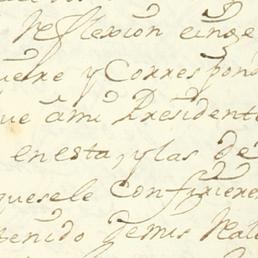 Reflexion einge
uiere y Correspon
ue ami Presidente
en esta, y las de
quesele Confirieren
tenido demis Real